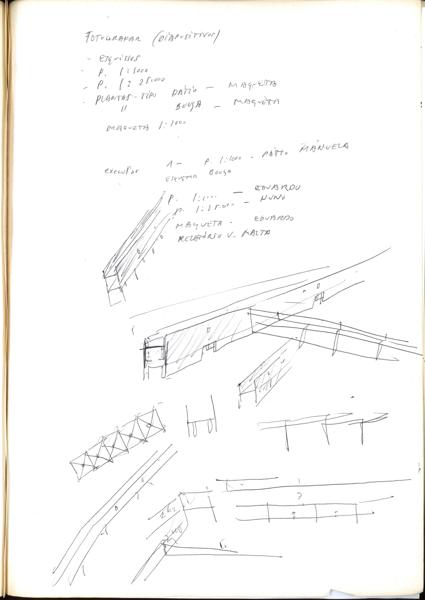 FOTOGRAFAR (DIAPOSITIVOS)
- ESQUISSOS
- P. 1:1000
- P. 1:25000
- PLANTAS-TIPO PÁTIO - MAQUETA
" BOUÇA - MAQUETA
MAQUETA 1:1000
executar 1 - P. 1:1000 - PÁTIO MANUELA
ESQUEMA BOUÇA
P. 1:1000 - EDUARDO
P. 1:25000 - NUNO
MAQUETA - EDUARDO
RELATÓRIO V. MALTA